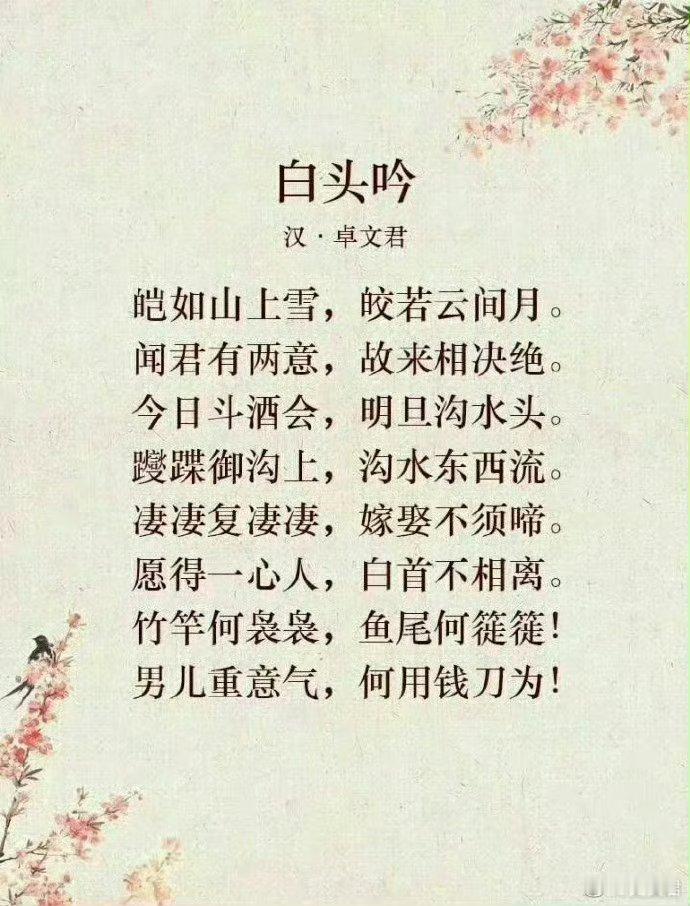 白头吟
汉·卓文君
皑如山上雪，皎若云间月。
闻君有两意，故来相决绝。
今日斗酒会，明旦沟水头。
躞蹀御沟上，沟水东西流。
凄凄复凄凄，嫁娶不须啼。
愿得一心人，白首不相离。
竹竿何袅袅，鱼尾何簁簁！
男儿重意气，何用钱刀为！